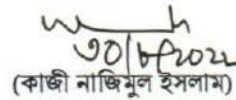 ৩০/৮/২০২২
(কাজী নাজিমুল ইসলাম)